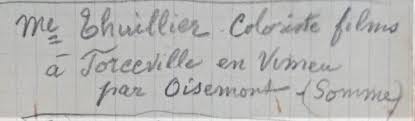 Me Thuillier Coloriste films
à Forceville en Vimeu
par Oisemont (Somme)